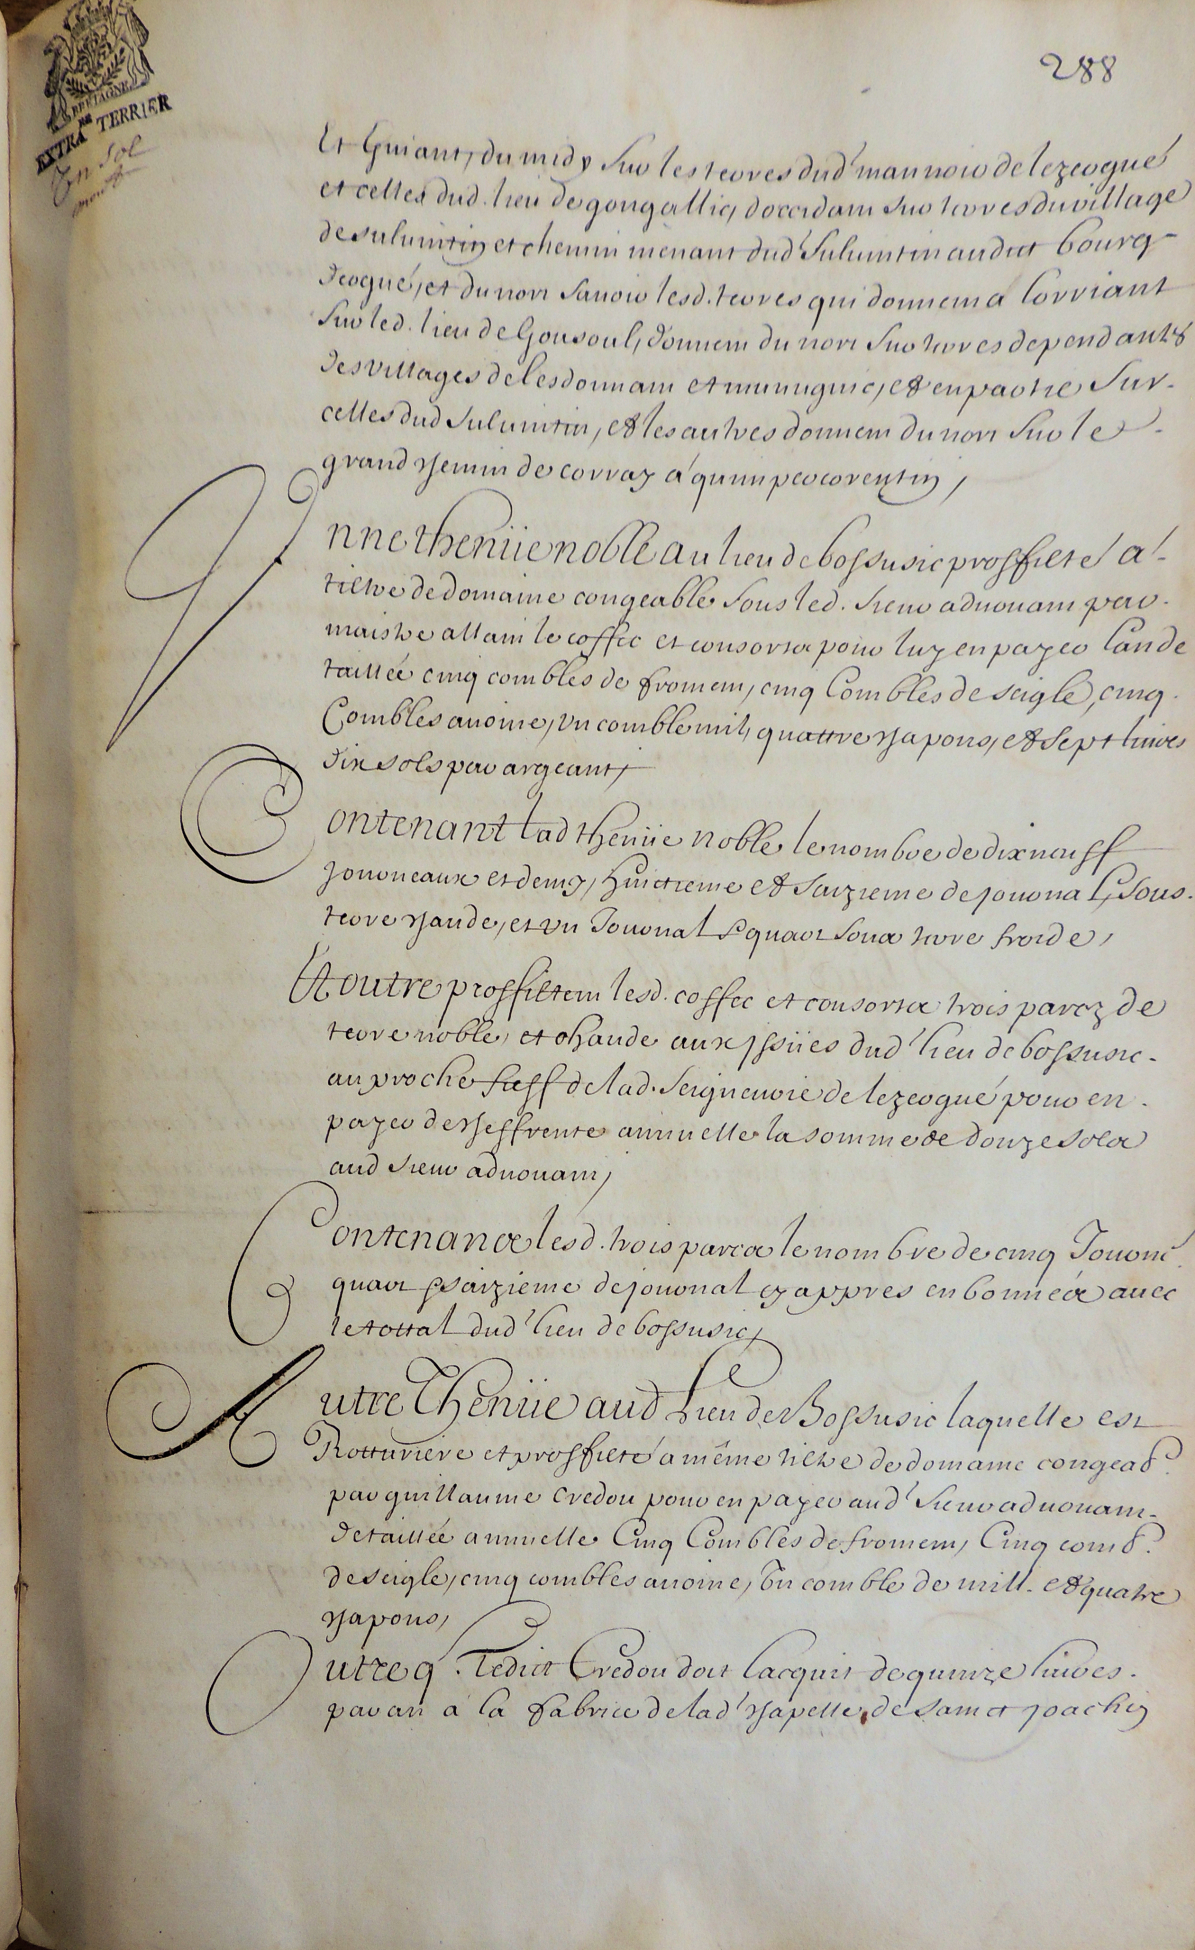 288
BRETAGNE
EXTRA RE TERRIER
En sol
Et Guiant, du midy sur les terres dud' mannoir de lezergué
et celles dud. lieu de gongallic, doccidam sur terres du village
de suluintin et chemin menant dud' suluintin audict bourg
dergué, et du nort savoir lesd. terres qui donnem a lorriant
sur led. lieu de Gousoul, donnem du nort sur terres dependants
des villages de lesdonnam et munuguic, et en partie sur
celles dud suluintin, et les autres donnem du nort sur le
grand chemin de corray á quimpercorentin,
Unne thenüe noble au lieu de bossusic proffitté a'
tiltre de domaine congeable sous led. sieur advouam par
maistre allain le coffec et consorts pour luy en payer l'an de
taillée cinq combles de fromem, cinq Combles de seigle, cinq
Combles avoine, un comble mil, quattre chapons, et sept livres
dix sols par argeant,
Contenant lad thenüe noble le nombre de dix neuff
journeaux et demy, huictieme et saizieme de journal, sous
terre chaude, et un Journal quart sous terre froide,
Et outre proffittem lesd. coffec et consorts trois parcz de
terre noble, et chaude aux issües dud' lieu de bossusic
au proche fieff de lad. Seigneurie de lezergué pour en
payer de cheffrente annuelle la somme de douze sols
aud sieur advouam,
Contenance lesd. trois parcs le nombre de cinq Journé
quart saizieme de journal cy appres en bonnéé avec
le tottal dud' lieu de bossusic,
Autre Thenüe aud lieu de Bossusic laquelle est
Rotturiere et proffitté a même tiltre de domaine congeab.
par guillaume Credou pour en payer aud' sieur advouam
de taillée annuelle Cinq Combles de fromem, Cinq comb.
de seigle, cinq combles avoine, Un comble de mill. et quatre
chapons,
Outre q. ledict Credou doit lacquit de quinze livres
par an a la fabrice de lad' chapelle de sainct joachin